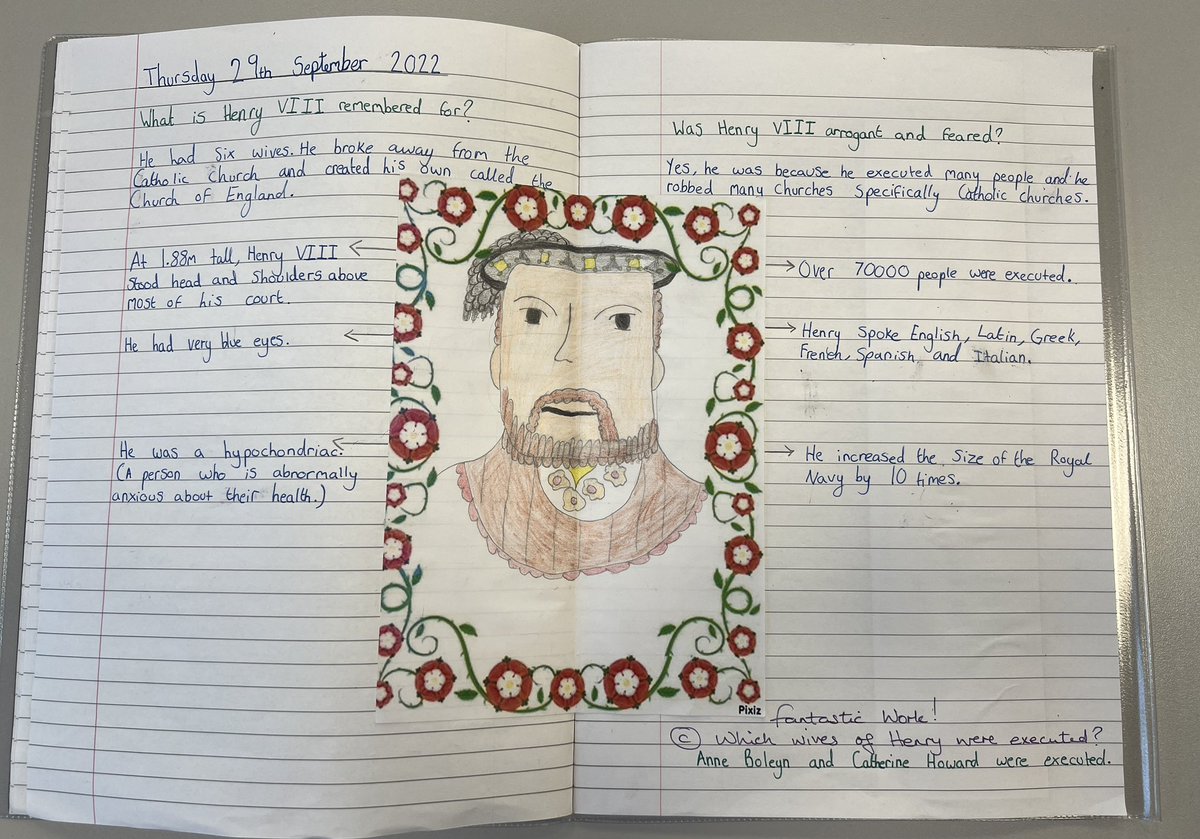 Thursday 29th September 2022
What is Henry VIII remembered for?
He had Six wives. He broke away from the
Catholic Church and created his own called the
Church of England.
At 1.88m tall, Henry VIII
Stood head and Shoulders above
most of his court.
He had very blue eyes.
He was a hypochondriac.
(A person who is abnormally
anxious about their health.)
Was Henry VIII arrogant and feared?
Yes, he was because he executed many people and he
robbed many Churches Specifically Catholic churches.
Over 70000 people were executed.
Henry Spoke English, Latin, Greek,
French, Spanish, and Italian.
He increased the Size of the Royal
Navy by 10 times.
Pixiz
fantastic Work!
C Which wives of Henry were executed?
Anne Boleyn and Catherine Howard were executed.